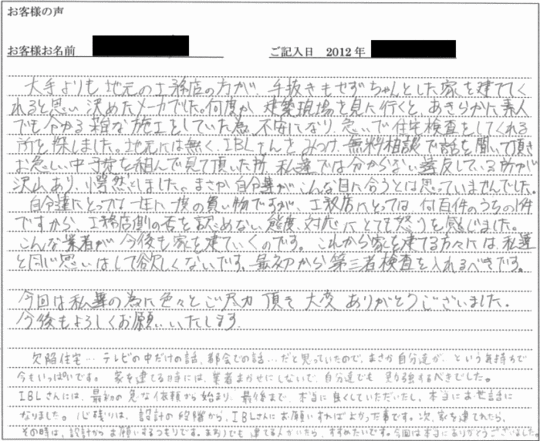 お客様の声
お客様お名前
ご記入日 2012年
大手よりも地元の工務店の方が、手抜きもせずちゃんとした家を建ててく
れると思い決めたメーカーでした。何度か建築現場を見に行くと、あきらかに素人
でも分かる雑な施工をしていた為、不安になり急いで住宅検査をしてくれる
所を探しました。地元には無く、IBLさんをみつけ、無料相談で話を聞いて頂き
お忙しい中予定を組んで見て頂いた所、私達では分からない違反している所が
沢山あり、愕然としました。まさか自分達が、こんな目に合うとは思っていませんでした。
自分達にとっては一生に一度の買い物ですが、工務店にとっては何百件のうちの1件
ですから、工務店側の否を認めない態度、対応にとても怒りを感じました。
こんな業者が今後も家を建てていくのです。これから家を建てる方々には私達
と同じ思いはして欲しくないです。最初から第三者検査を入れるべきです。
今回は私達の為に色々とご尽力頂き大変ありがとうございました。
今後もよろしくお願いいたします。
欠陥住宅…テレビの中だけの話、都会での話…だと思っていたので、まさか自分達が、という気持ちで
今もいっぱいです。家を建てる時には、業者まかせにしないで、自分達でも勉強するべきでした。
IBLさんには、最初の急な依頼から始まり、最後まで、本当に良くしていただいたし、本当にお世話に
なりました。心残りは、設計の段階から、IBLさんにお願いすればよかった事です。次、家を建てれたら、
その時は、設計からお願いするつもりです。まわりでも建てる人がいたら、すすめたいです。今回は本当にありがとうございました。